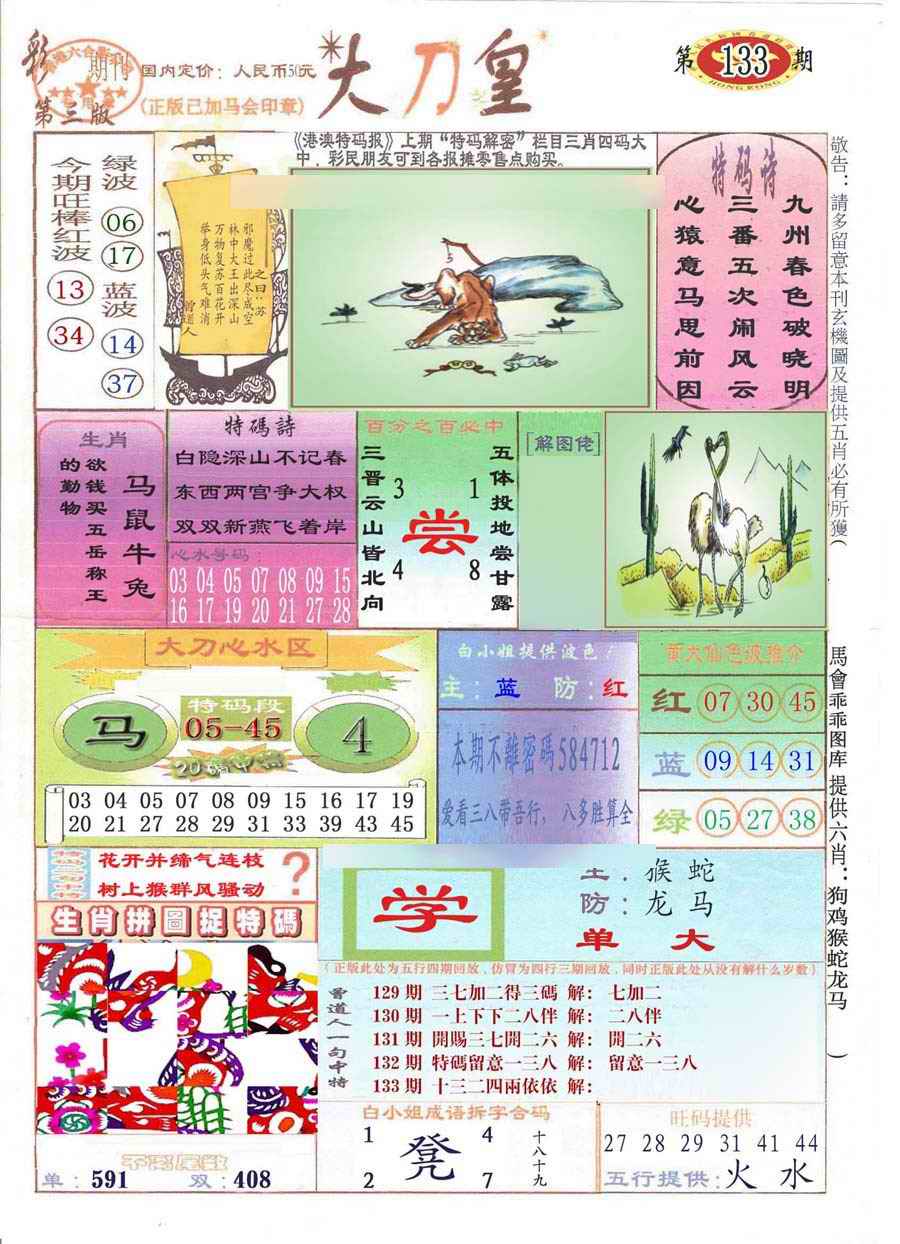 彩
期刊
第三版
国内定价：人民币50元
(正版已加马会印章)
大刀皇
第133期
HONG KONG
今期旺棒红波
13
34
绿波
06
17
蓝波
14
37
之曰：苏
邪魔过此尽成空
林中大王出深山
万物复苏百花开
举身低头气难消
曾道人
《港澳特码报》上期“特码解密”栏目三肖四码大
中，彩民朋友可到各报摊零售点购买。
特码诗
九州春色破晓明
三番五次闹风云
心猿意马思前因
敬告：請多留意本刊玄機圖及提供五肖必有所獲(
生肖
马鼠牛兔
欲钱买五岳称王
的勤物
特碼詩
白隐深山不记春
东西两宫争大权
双双新燕飞着岸
心水号码：
03 04 05 07 08 09 15
16 17 19 20 21 27 28
百分之百必中
三晋云山皆北向
五体投地尝甘露
3 1
尝
4 8
[解图佬]
大刀心水区
马
特码段
05-45
4
20碼中特
03 04 05 07 08 09 15 16 17 19
20 21 27 28 29 31 33 39 43 45
白小姐提供波色
主：蓝 防：红
本期不離密碼584712
爱看三八带吾行，八多胜算全
黄大仙色波推介
红 07 30 45
蓝 09 14 31
绿 05 27 38
馬會乖乖图库 提供六肖：狗鸡猴蛇龙马 )
花开并缔气连枝
树上猴群风骚动
?
生肖拼圖捉特碼
学
主：猴 蛇
防：龙 马
单 大
(正版此处为五行四期回放，仿冒为四行三期回放，同时正版此处从没有解什么岁数)
曾道人一句中特
129期 三七加二得三碼 解： 七加二
130期 一上下下二八伴 解： 二八伴
131期 開賜三七開二六 解： 開二六
132期 特碼留意一三八 解： 留意一三八
133期 十三二四兩依依 解：
不彩尾数
单：591 双：408
白小姐成语拆字合码
1 4
凳
2 7
十八十九
旺码提供
27 28 29 31 41 44
五行提供：火 水